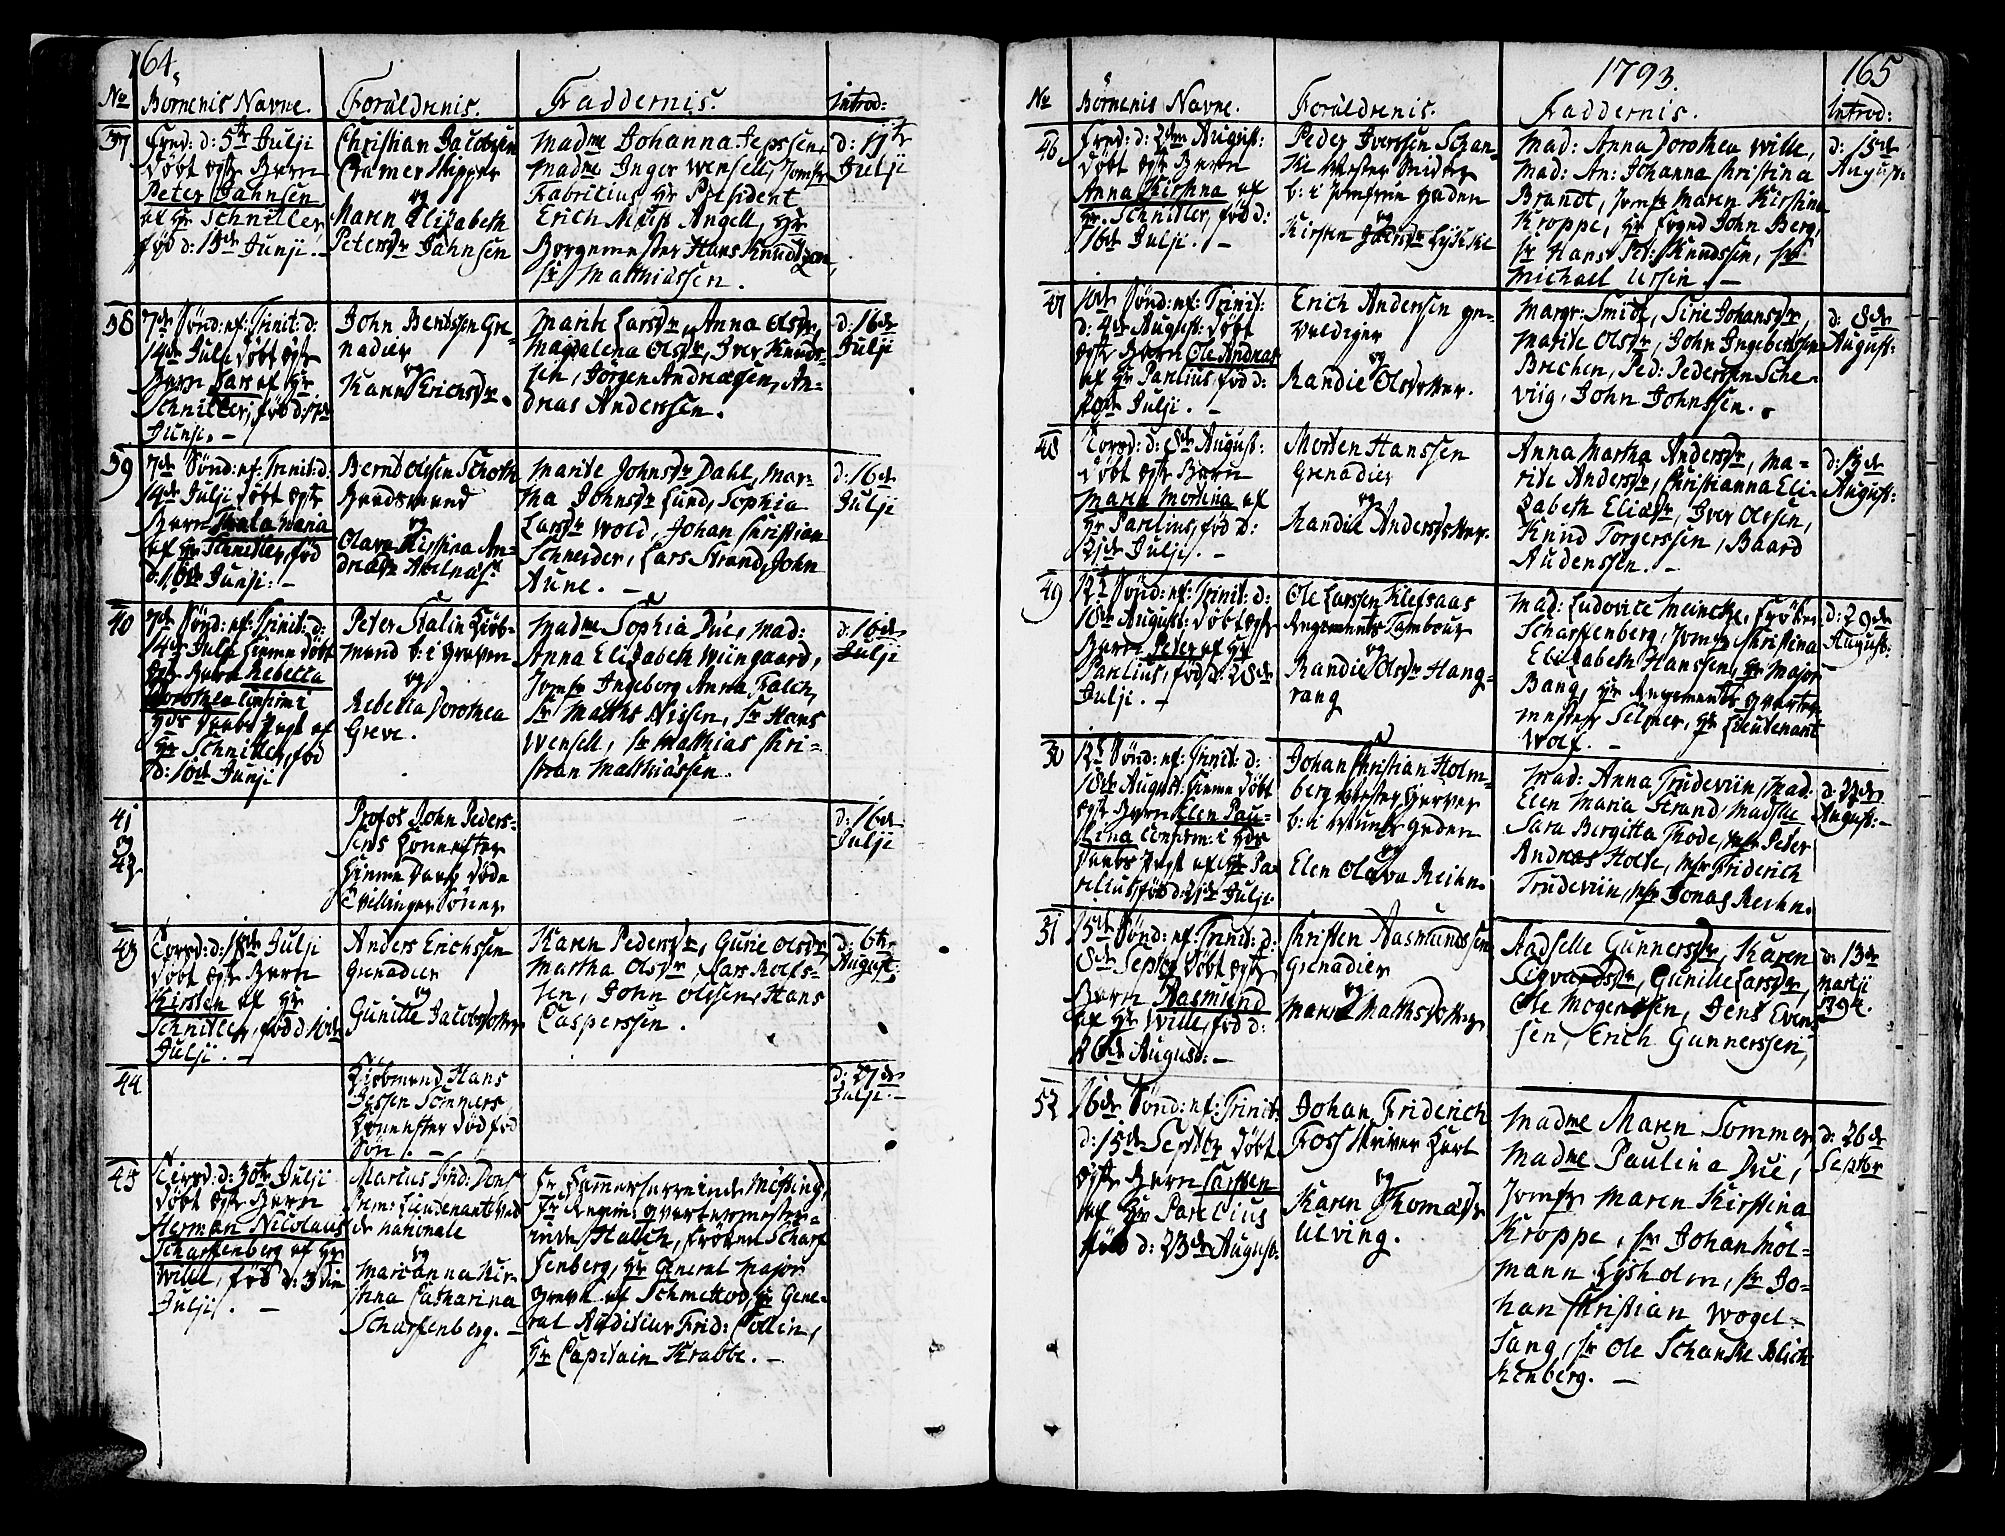 164.
No
Börnenis Navne.
Forældrenis.
Faddernis.
Introd:
37
Fred: d: 5te Julji
döbt Barn
Peter Jahnsen
af Hr Schnitler
föd d: 13de Junji. -
Christian Jacobsen
Cramer Skipper
og
Maren Elisabeth
Petersdr Jahnsen
Madme Johanna Jepsen,
Madme Inger Wensell, Jomfr
Fabritius, Hr Præsident
Erich Must Angell, Hr
Borgemester Hans Knudtzon,
Sr Matthiassen.
d: 17de
Julji
38
7de Sönd: ef: Trinit: d:
14de Julji döbt
Barn Lars af Hr
Schnitler, föd d:
Junji. -
John Berntsen Gre-
nadier
og
Karen Erichsdr.
Marit Larsdr, Anna Olsdr,
Magdalena Olsdr, Iver Knuds-
sen, Jörgen Andreasen, An-
dreas Anderssen.
d: 16de
Julji
39
7de Sönd: ef: Trinit: d:
14de Julji döbt
Barn
af Hr Schnitler, föd
d: 16de Junji: -
Bernt Olssen Schoth
og
Olava Kistina An-
Marite Johnsdr Dahl, Mar-
tha Johnsdr Lund, Sophia
Larsdr Wold, Johan Christian
Schneider, Lars Strand, John
Aune. -
d: 16de
Julji
40
7de Sönd: ef: Trinit: d:
14de Julji hieme döbt
Barn Rebecca
Dorothea confirm:
af
Hr Schnitler, föd
d: 10de Junji
Peter Stalin Kiöb-
mand b: i Graven
og
Rebecca Dorothea
Greve.
Madme Sophia Due, Mad:
Anna Elisabeth Wiingaard,
Jomfr Ingeborg Anna Falch,
Sr Matths Nissen, Sr Hans
Wensell, Sr Matthias Chri-
stian Matthiassen.
d: 16de
Julji
41
og
42
Profos John Peders-
sens
hieme döde
Tvillinger Sönner
d: 16de
Julji
43
Torsd: d: 18de Julji
döbt Barn
Kirsten af Hr
Schnitler, föd d 10de
Julji. -
Anders Erichssen
Grenadier
og
Gunille Jacobsdotter
Karen Pedersdr, Gurie Olsdr
Martha Olsdr, Lars Rolfs-
sen, John Olssen, Hans
Casperssen.
d: 6te
August:
44
Kiöbmand Hans
Jessen Sommers
död föd
Sön. -
d: 27de
Julji. -
45
Tirsd: d: 30te Julji
döbt Barn
Herman Nicolaus
Scharffenberg af Hr
Wille, föd d: 3die
Julji. -
Marcus Frid:
Prem: Lieutenant ved
de nationale
og
Marianna Kir-
stina Catharina
Scharffenberg. -
Fr Kammerherreinde Mösting,
Fr Regim: Qvartermester-
inde Halch, Fröken Scharf
fenberg, Hr General Major
Greve af Schmettow, Hr Gene-
ral Auditeur Frid: Collin,
Hr Capitain Krabbe. -
1793.
165
No
Börnenis Navne.
Forældrenis.
Faddernis.
Introd:
46
Fred: d: 2den August:
döbt Barn
Anna Kirstina af
Hr. Schnitler, föd d:
16de Julji. -
Peder Iverssen Schan-
ke Mester Smider
b: i Jomfrue gaden
og
Kirsten
Mad: Anna Dorothea Wille,
Mad: An: Johanna Christina
Brandt, Jomfr Maren Kirstina
Kroppe, Hr Fogd John Berg,
Sr Hans Pet: Knudssen, Sr
Michael Ussin. -
d: 15de
August:
47
10de Sönd: ef: Trinit:
d: 4de August: döbt
Barn Ole Andreas
af Hr Parelius, föd d:
Julji. -
Erich Anderssen ge-
valdiger
og
Randie Olsdotter.
Margr: Smidt, Sirie Johansdr,
Marite Olsdr, John Ingebertssen
Brechen, Ped: Pederssen Sche-
viig, John Johnssen.
d: 8de
August:
48
Torsd: d: 8de August:
döbt Barn
Maren Mortina af
Hr Parelius, föd d:
21de Julji. -
Morten Hanssen
Grenadier
og
Randie Andersdotter.
Anna Martha Andersdr, Ma-
rite Andersdr, Christianna Eli-
zabeth Eliasdr, Iver Olssen,
Knud Torgerssen, Baard
Audenssen. -
d: 13de
August:
49
12te Sönd: ef: Trinit: d:
18de August: döbt
Barn Peter af Hr
Parelius, föd d: 28de
Julji. -
Ole Larssen Klefsaas
Regiments Tambour
og
Randie Olsdr Hang-
rang
Mad: Ludovice Meincke, Fröken
Scharffenberg, Jomfr Christina
Elizabeth Hanssen, Hr Major
Bang, Hr Regiments Qvarter
mester Selmer, Hr Lieutenant
Wolf. -
d: 29de
August:
50
12te Sönd: ef: Trinit: d:
18de August: hieme döbt
Barn Elen Pau-
lina confirm: i
af Hr Pa-
relius, föd d: 21de Julji.
Johan Christian Holm-
berg Mester Garver
b: i Munke gaden
og
Elen Olava Reihn.
Mad: Anna Trudeviin, Mad:
Elen Maria Strand, Madslle
Sara Bergitta Thode, Mr Peter
Andreas Holte, Mr Friderich
Trudeviin, Mr Jonas Reihn.
d: 22de
August: -
51
15de Sönd: ef: Trinit: d:
8de Septbr döbt
Barn Aasmund
af Hr Wille, föd d:
26de August: -
Christen Aasmundssen
Grenadier
og
Marit Mathsdotter
Aadselle Gunnersdr, Karen
Sigvardsdr, Gunille Larsdr,
Ole Mogenssen, Jens Evens
sen, Erich Gunnerssen,
d: 13de
Martji
1794.
52
16de Sönd: ef: Trinit:
d: 15de Septbr döbt
Barn Carsten
af Hr Parelius
föd d: 23de August:
Johan Friderich
Foss Skriver Karl
og
Karen Thomædr
Ulving.
Madme Maren Sommer,
Madme Paulina Due,
Jomfr Maren Kirstina
Kroppe, Sr Johan Möl-
mann Lysholm, Sr Jo-
han Christian Wogel-
sang, Sr Ole Schanke Blich
kenberg. -
d: 26de
Septbr